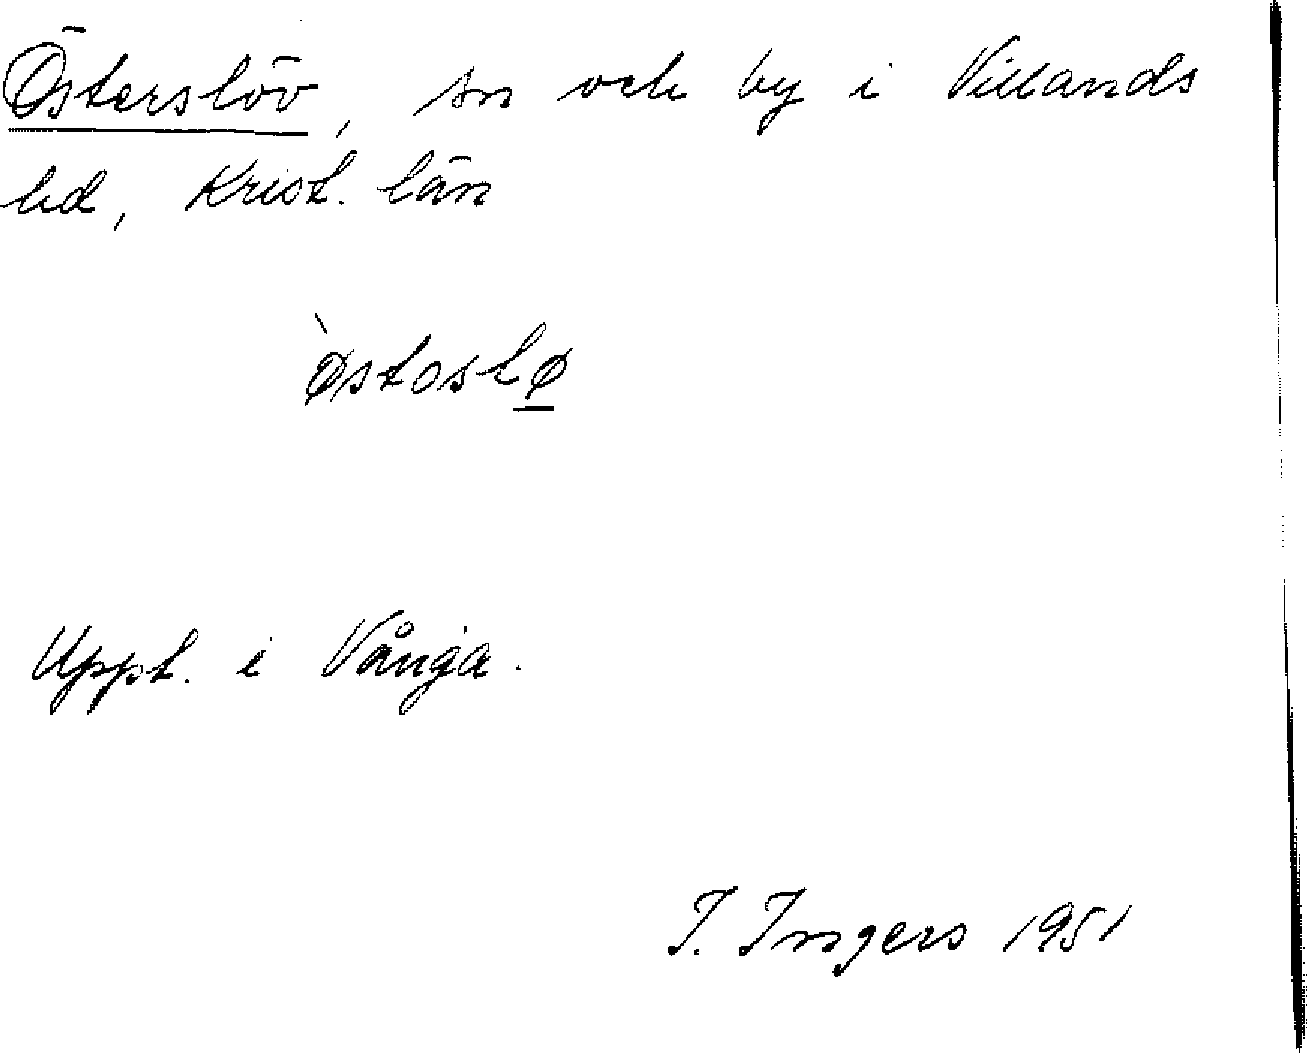 Österslöv, sn och by i Villands
hd, Krist. län
\østoslø
Uppt. i Vånga.
I. Ingers 1951